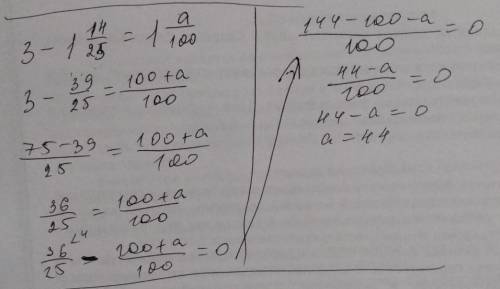 3 - 1 14/25 = 1 a/100
3 - 39/25 = (100+a)/100
(75-39)/25 = (100+a)/100
36/25 = (100+a)/100
36/25 ∠4 - (100+a)/100 = 0
(144-100-a)/100 = 0
(44-a)/100 = 0
44-a=0
a=44